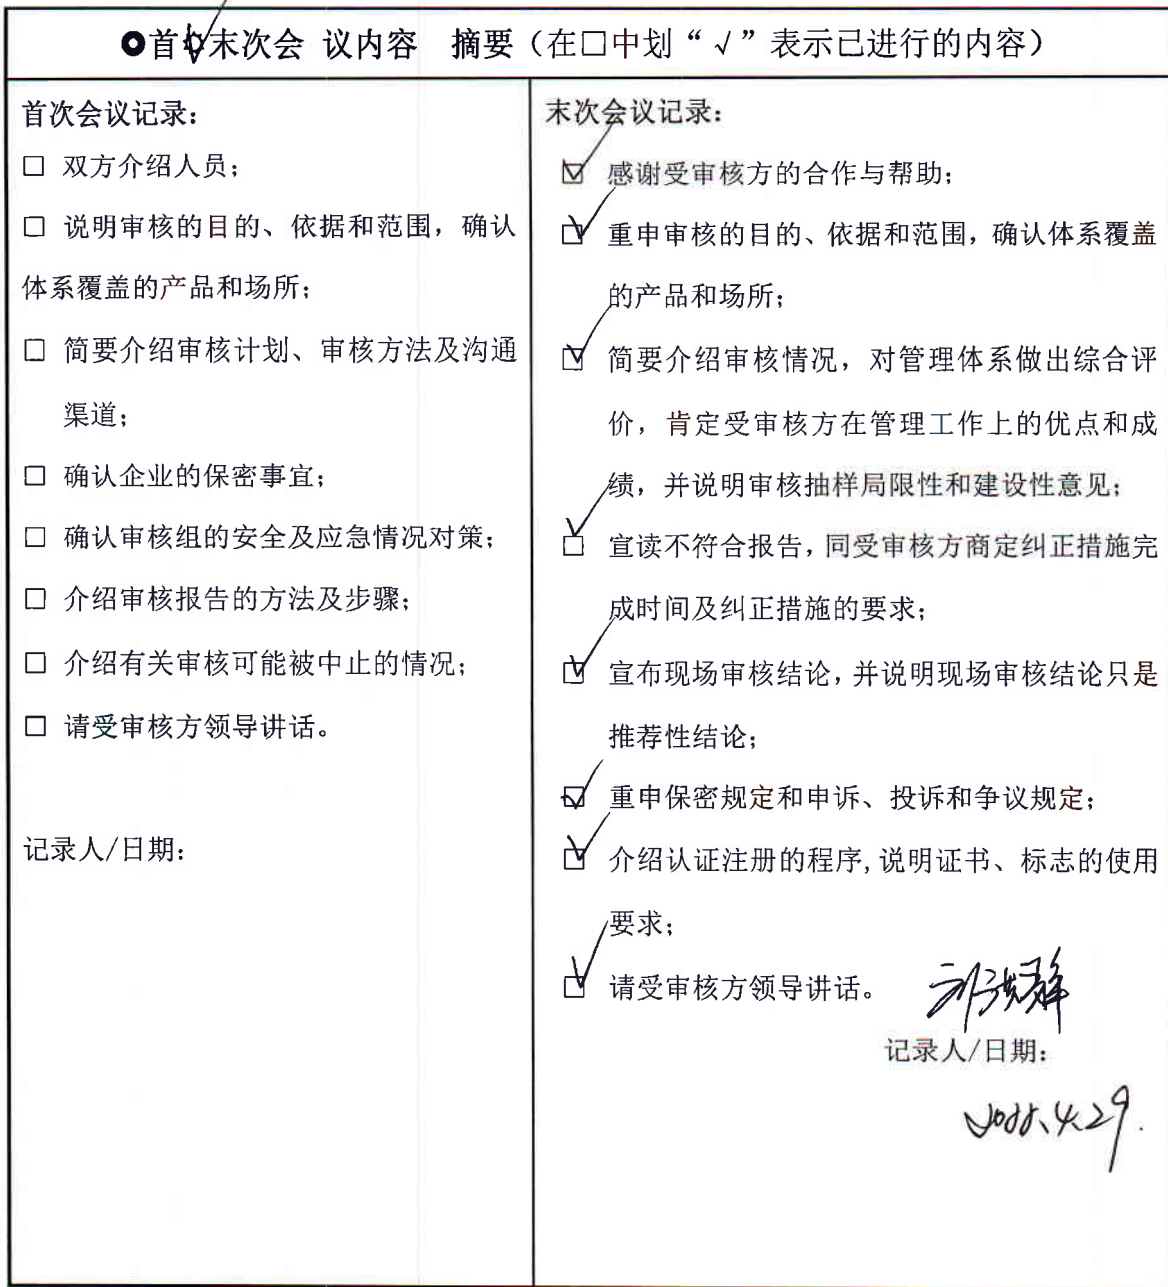 首 末次会 议内容 摘要（在□中划“√”表示已进行的内容）
首次会议记录：
□ 双方介绍人员；
□ 说明审核的目的、依据和范围，确认
体系覆盖的产品和场所；
□ 简要介绍审核计划、审核方法及沟通
渠道；
□ 确认企业的保密事宜；
□ 确认审核组的安全及应急情况对策；
□ 介绍审核报告的方法及步骤；
□ 介绍有关审核可能被中止的情况；
□ 请受审核方领导讲话。
记录人/日期：
末次会议记录：
☑ 感谢受审核方的合作与帮助；
☑ 重申审核的目的、依据和范围，确认体系覆盖
的产品和场所；
☑ 简要介绍审核情况，对管理体系做出综合评
价，肯定受审核方在管理工作上的优点和成
绩，并说明审核抽样局限性和建设性意见；
☑ 宣读不符合报告，同受审核方商定纠正措施完
成时间及纠正措施的要求；
☑ 宣布现场审核结论，并说明现场审核结论只是
推荐性结论；
☑ 重申保密规定和申诉、投诉和争议规定；
☑ 介绍认证注册的程序，说明证书、标志的使用
要求；
☑ 请受审核方领导讲话。
记录人/日期：